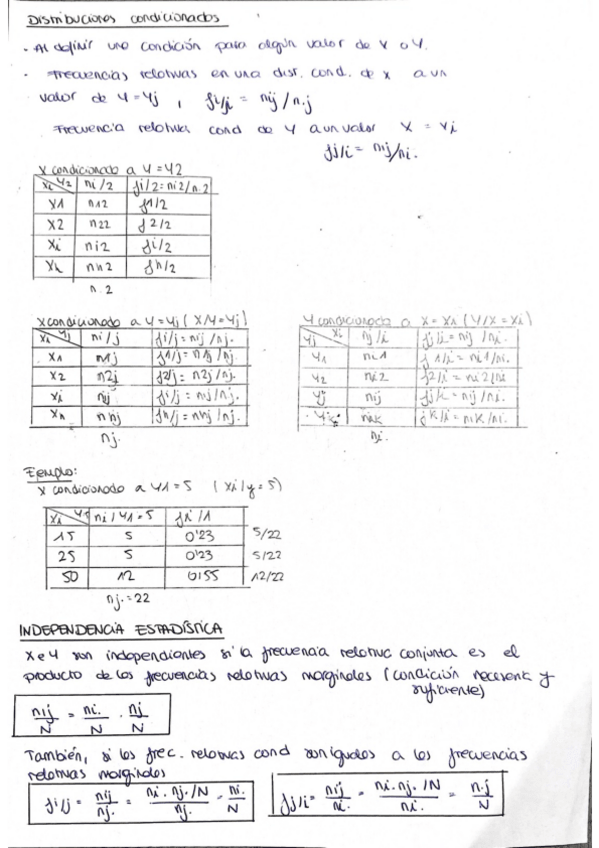 Distribuciones condicionadas
· Al definir una condición para algún valor de X o Y.
· Frecuencias relativas en una dist. cond. de x a un
valor de Y = Yj , fi/j = nij / n.j
Frecuencia relativa cond de Y a un valor X = xi
fj/i = nij/ni.
X condicionado a Y = Y2
xi Y2 | ni/2 | fi/2 = ni2/n.2
X1 | n12 | f1/2
X2 | n22 | f2/2
Xi | ni2 | fi/2
Xh | nh2 | fh/2
n.2
X condicionado a Y = Yj ( X/Y=Yj )
xi Yj | ni/j | fi/j = nij/nj.
X1 | n1j | f1/j = n1j/nj.
X2 | n2j | f2/j = n2j/nj.
Xi | nij | fi/j = nij/nj.
Xh | nhj | fh/j = nhj/nj.
nj.
Y condicionado a X = Xi ( Y/X = Xi )
Yj Xi | nj/i | fj/i = nij/ni.
Y1 | ni1 | f1/i = ni1/ni.
Y2 | ni2 | f2/i = ni2/ni
Yj | nij | fj/i = nij/ni.
Yk | nik | fk/i = nik/ni.
ni.
Ejemplo:
X condicionado a Y1 = 5 ( Xi/y = 5)
ni/Y1=5 | fi/1
15 | 5 | 0'23 5/22
25 | 5 | 0'23 5/22
50 | 12 | 0'55 12/22
nj. = 22
INDEPENDENCIA ESTADÍSTICA
X e Y son independientes si la frecuencia relativa conjunta es el
producto de las frecuencias relativas marginales (condición necesaria y
suficiente)
nij/N = ni./N · nj/N
También, si las frec. relativas cond son iguales a las frecuencias
relativas marginales
fi/j = nij/nj. = ni. nj. /N / nj. = ni./N
fj/i = nij/ni. = ni. nj. /N / ni. = n.j/N